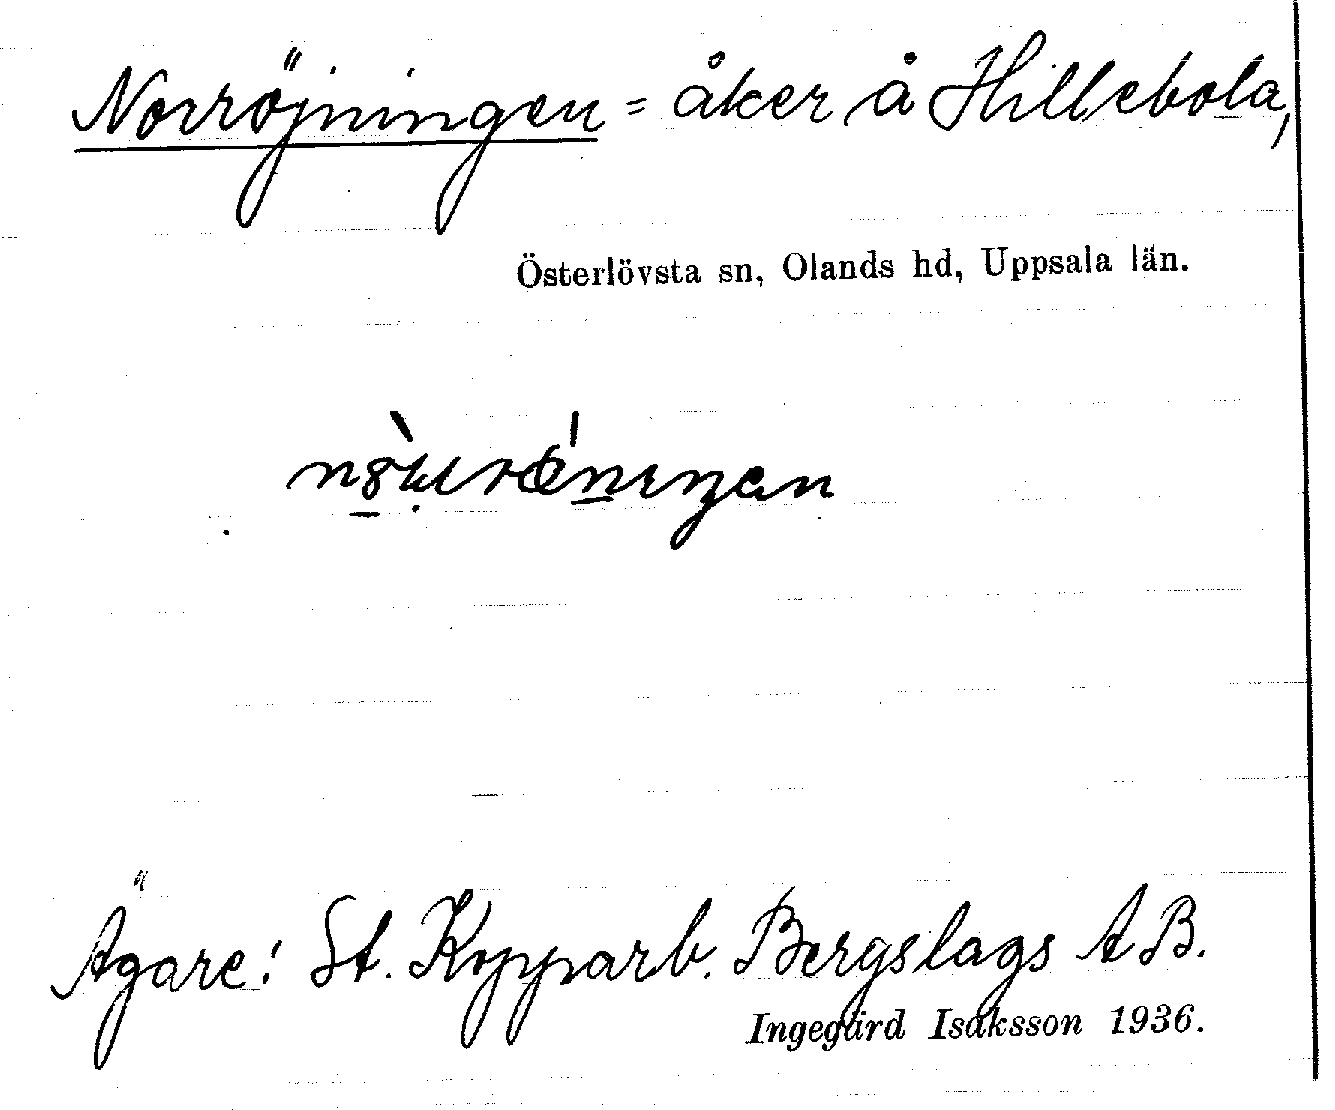 Norröjningen = åker å Hillebola,
Österlövsta sn, Olands hd, Uppsala län.
Ägare: St. Kopparb. Bergslags A B.
Ingegärd Isaksson 1936.